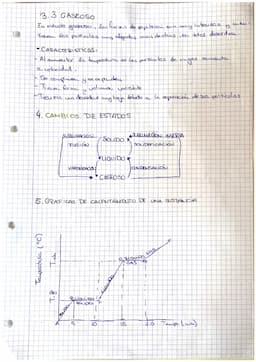 3.3 GASEOSO
En estado gaseoso, las fuerzas de repulsión son muy intensas y
las partículas muy alejadas unas de otras, en total desorden
• CARACTERÍSTICAS:
- Al aumentar la temperatura de las partículas de un gas aumenta
su velocidad.
- Se comprimen y se expanden
- Tienen forma y volumen variable
- Tienen una densidad muy baja debido a la separación de sus partículas
4. CAMBIOS DE ESTADOS
SÓLIDO
FUSIÓN
SOLIDIFICACIÓN
LÍQUIDO
CONDENSACIÓN
GASEOSO
5. GRÁFICAS DE CALENTAMIENTO DE UNA SUSTANCIA
Temperatura (°C)
5
10
15
20
Tiempo (min)